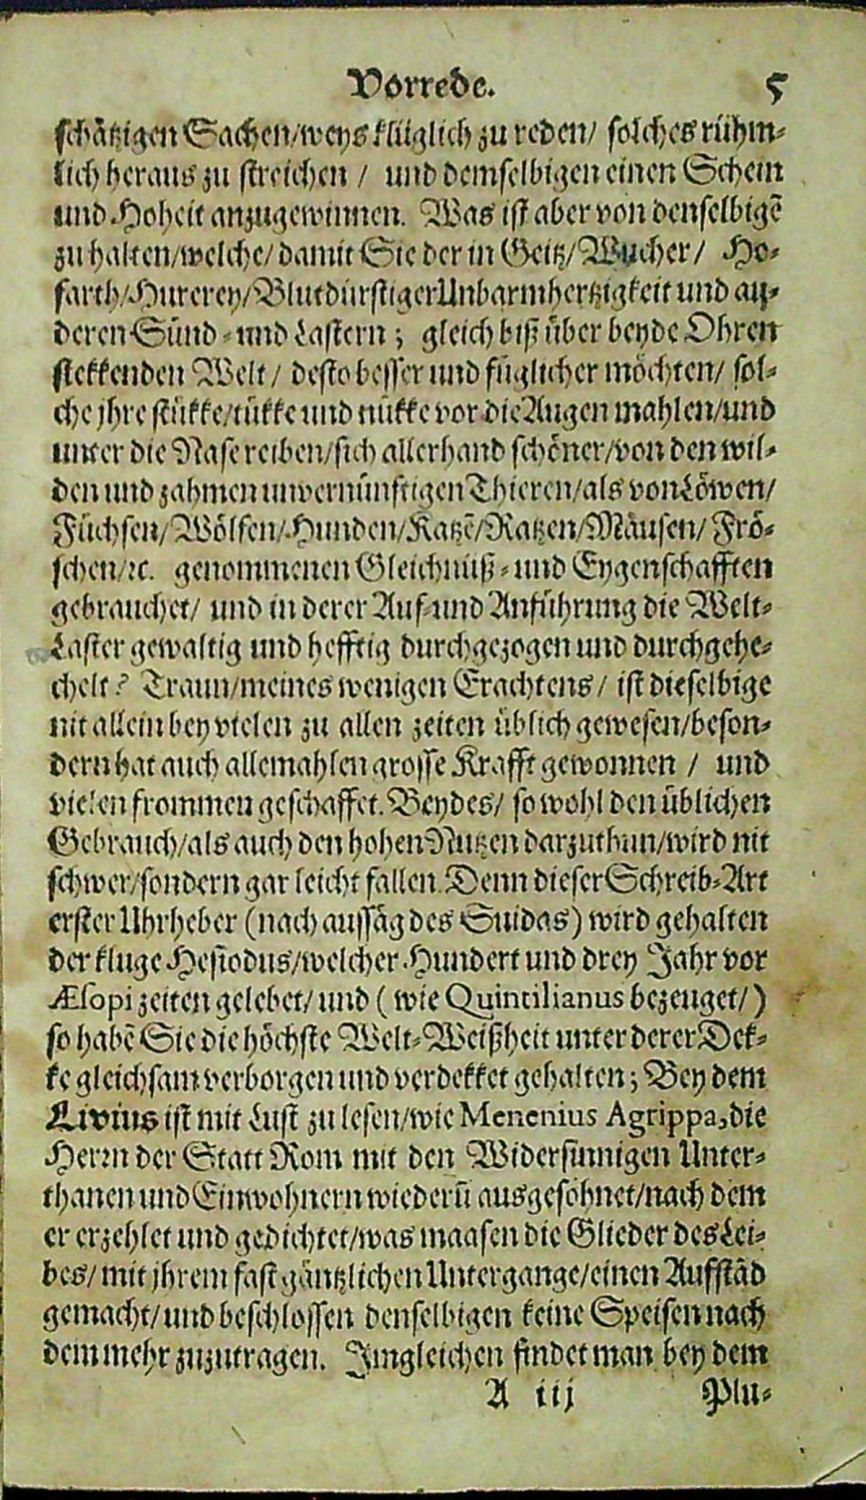 Vorrede. 5
schätzigen Sachen/weys klüglich zu reden/ solches rühm-
lich heraus zu streichen / und demselbigen einen Schein
und Hoheit anzugewinnen. Was ist aber von denselbigẽ
zu halten/welche/damit Sie der in Geitz/Wucher/ Ho-
farth/Hurerey/Blutdürstiger Unbarmhertzigkeit und an-
deren Sünd- und Lastern; gleich biß über beyde Ohren
stekkenden Welt/ desto besser und füglicher möchten/ sol-
che jhre stükke/tükke und nükke vor die Augen mahlen/und
unter die Nase reiben/sich allerhand schöner/von den wil-
den und zahmen unvernünftigen Thieren/als von Löwen/
Füchsen/Wölfen/Hunden/Katzẽ/Ratzen/Mäusen/Frö-
schen/ꝛc. genommenen Gleichnüß- und Eygenschafften
gebrauchet/ und in derer Auf- und Anführung die Welt-
Laster gewaltig und hefftig durchgezogen und durchgehe-
chelt? Traun/meines wenigen Erachtens/ ist dieselbige
nit allein bey vielen zu allen zeiten üblich gewesen/beson-
dern hat auch allemahlen grosse Krafft gewonnen / und
vielen frommen geschaffet. Beydes/ so wohl den üblichen
Gebrauch/als auch den hohen Nutzen darzuthun/wird nit
schwer/sondern gar leicht fallen. Denn dieser Schreib-Art
erster Uhrheber (nach aussag des Suidas) wird gehalten
der kluge Hesiodus/welcher Hundert und drey Jahr vor
Æsopi zeiten gelebet/und (wie Quintilianus bezeuget/)
so habẽ Sie die höchste Welt-Weißheit unter derer Dek-
ke gleichsam verborgen und verdekket gehalten; Bey dem
Livius ist mit Lust zu lesen/wie Menenius Agrippa, die
Herꝛn der Statt Rom mit den Widersinnigen Unter-
thanen und Einwohnern wiederũ ausgesöhnet/nach dem
er erzehlet und gedichtet/was maasen die Glieder des Lei-
bes/mit jhrem fast gäntzlichen Untergange/einen Aufstãd
gemacht/und beschlossen denselbigen keine Speisen nach
dem mehr zuzutragen. Jmgleichen findet man bey dem
A iij Plu-